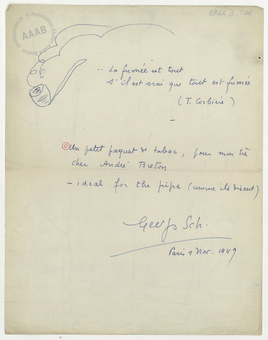 AAAB
.. La fumée est tout
s'il est vrai que tout est fumée
(T. Corbière)
—
Un petit paquet de tabac, pour mon très
cher André Breton
– ideal for the pipe (comme ils disent)
Paris 9 Nov. 1949